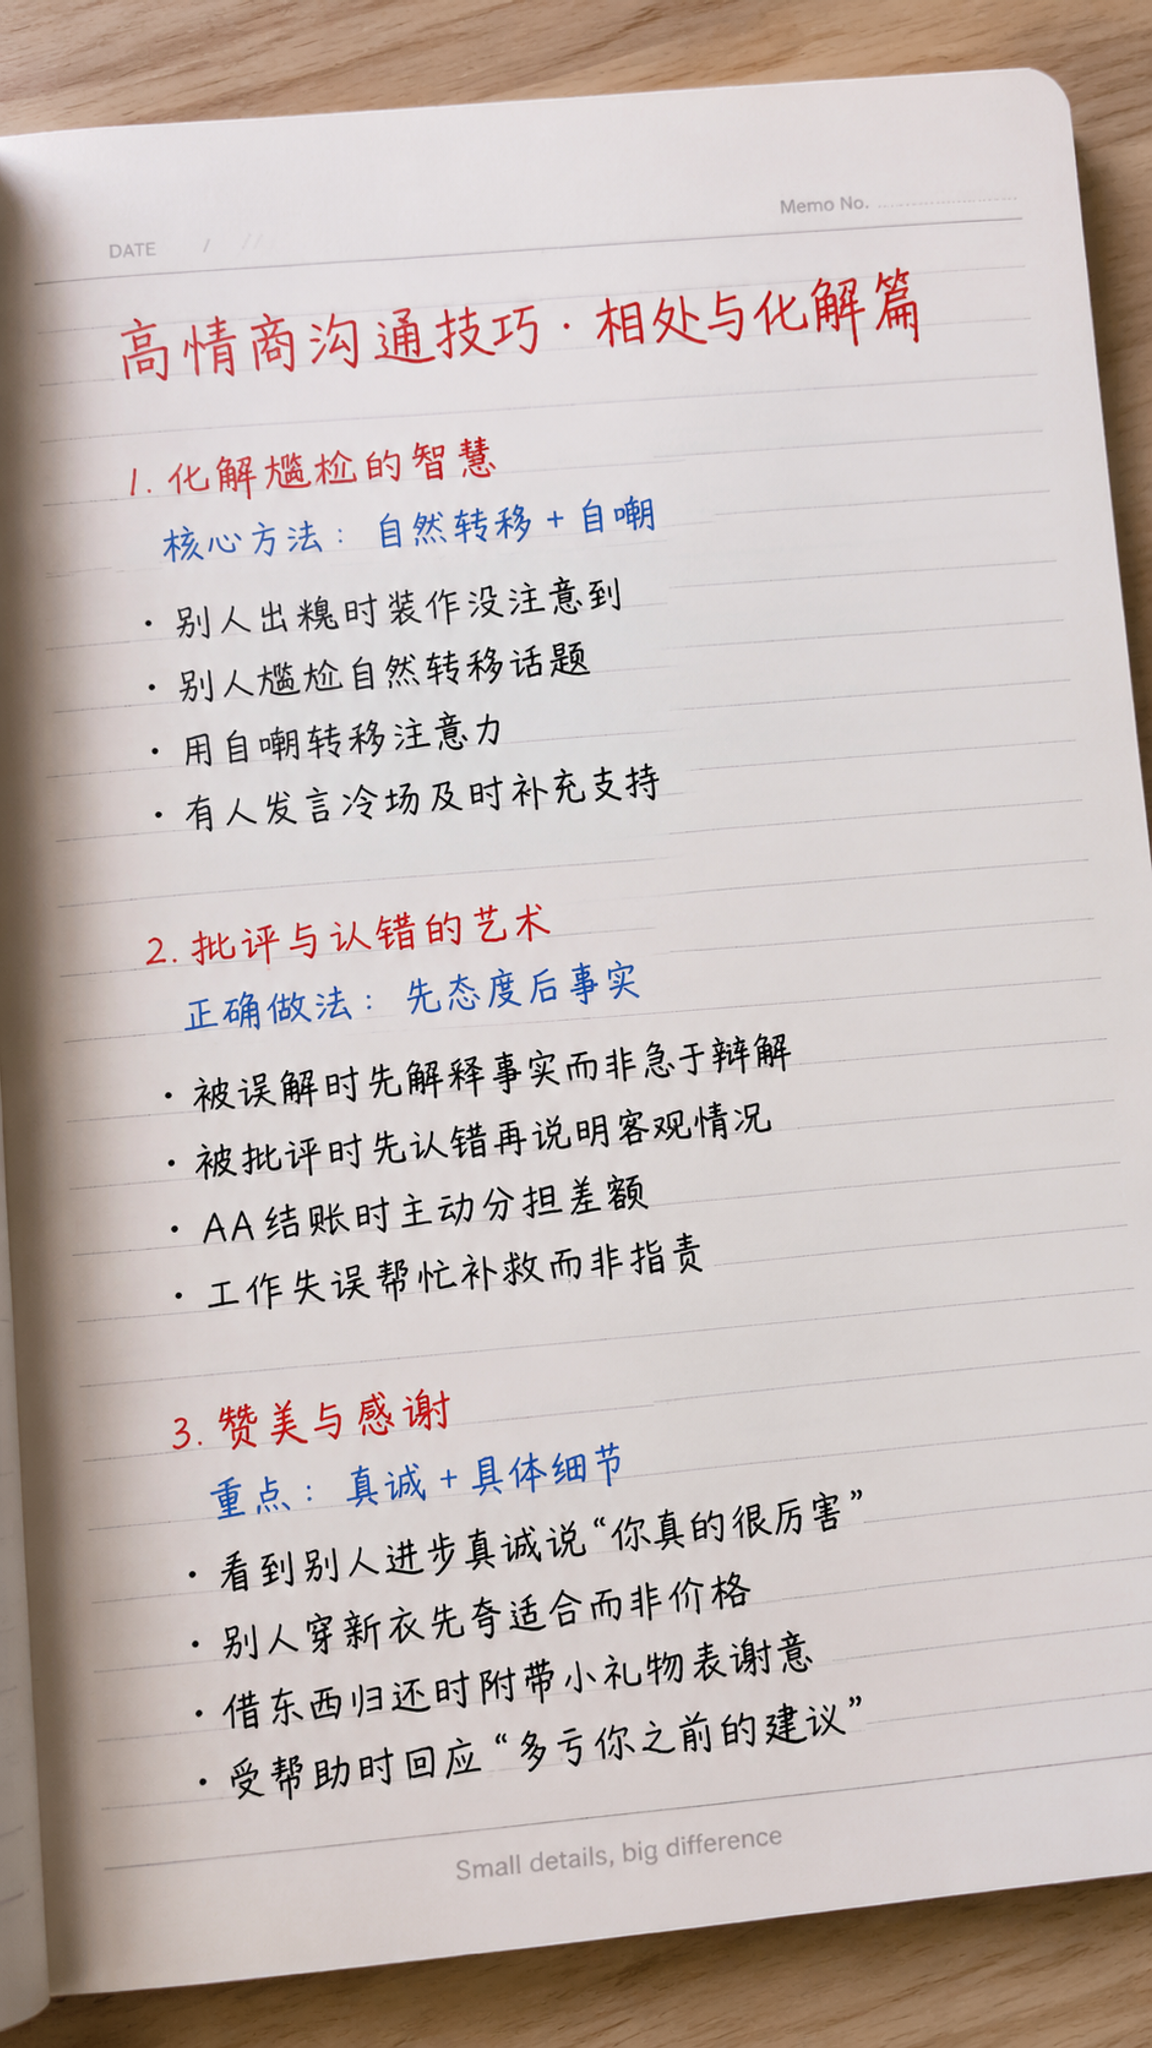 Memo No.
DATE / //
高情商沟通技巧·相处与化解篇
1. 化解尴尬的智慧
核心方法：自然转移+自嘲
·别人出糗时装作没注意到
·别人尴尬自然转移话题
·用自嘲转移注意力
·有人发言冷场及时补充支持
2. 批评与认错的艺术
正确做法：先态度后事实
·被误解时先解释事实而非急于辩解
·被批评时先认错再说明客观情况
·AA结账时主动分担差额
·工作失误帮忙补救而非指责
3. 赞美与感谢
重点：真诚+具体细节
·看到别人进步真诚说“你真的很厉害”
·别人穿新衣先夸适合而非价格
·借东西归还时附带小礼物表谢意
·受帮助时回应“多亏你之前的建议”
Small details, big difference